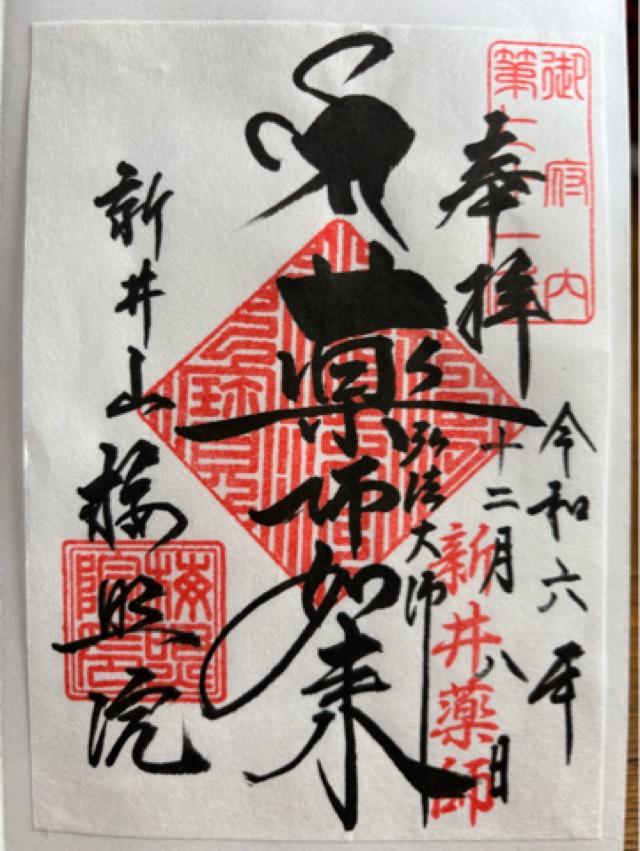 奉拝
御府内
第七十一
令和六年
十二月八日
新井薬師
弘法大師
薬師如来
新井山
梅照院
梅照院